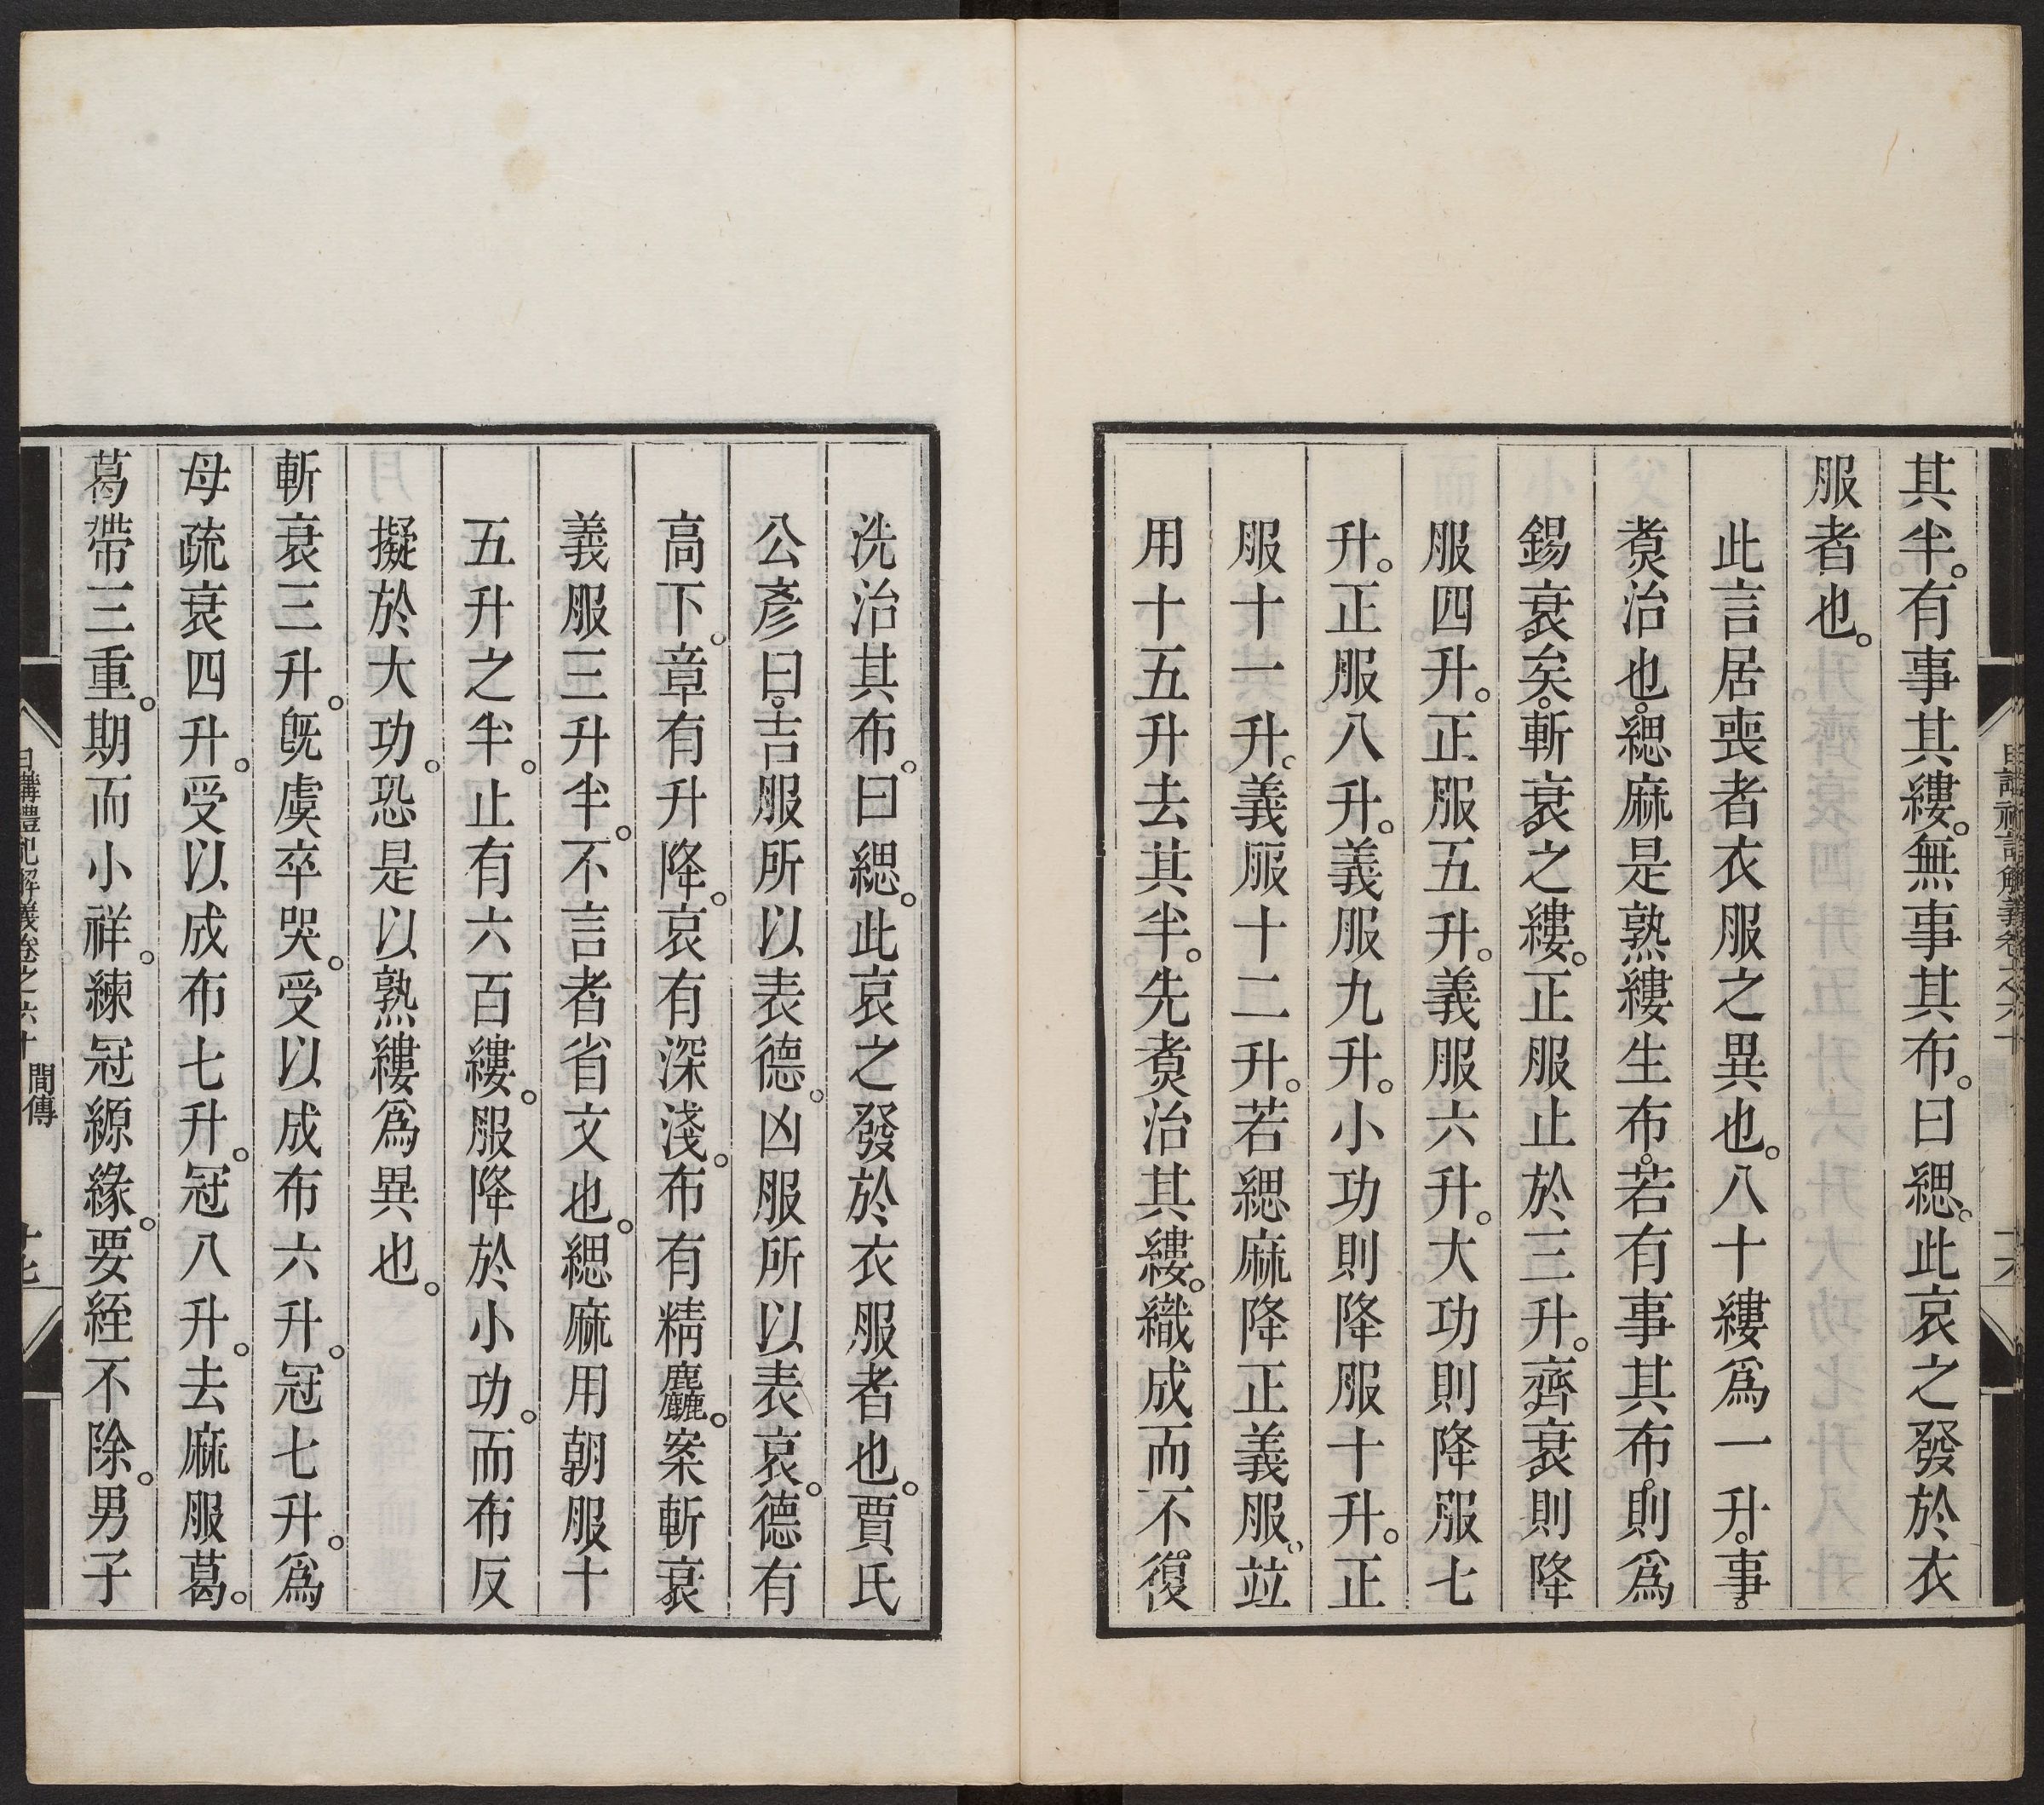 其半。有事其縷。無事其布。曰緦。此哀之發於衣
服者也。
此言居喪者衣服之異也。八十縷爲一升。事。
煑治也。緦麻是熟縷生布。若有事其布。則爲
錫衰矣。斬衰之縷。正服止於三升。齊衰則降
服四升。正服五升。義服六升。大功則降服七
升。正服八升。義服九升。小功則降服十升。正
服十一升。義服十二升。若緦麻降正義服。竝
用十五升去其半。先煑治其縷。織成而不復
洗治其布。曰緦。此哀之發於衣服者也。賈氏
公彥曰。吉服所以表德。凶服所以表哀。德有
高下。章有升降。哀有深淺。布有精麤。案斬衰
義服三升半。不言者省文也。緦麻用朝服十
五升之半。止有六百縷。服降於小功。而布反
擬於大功。恐是以熟縷爲異也。
斬衰三升。旣虞卒哭。受以成布六升。冠七升。爲
母疏衰四升。受以成布七升。冠八升。去麻服葛。
葛帶三重。期而小祥。練冠縓緣。要絰不除。男子
日講禮記解義卷之六十 間傳